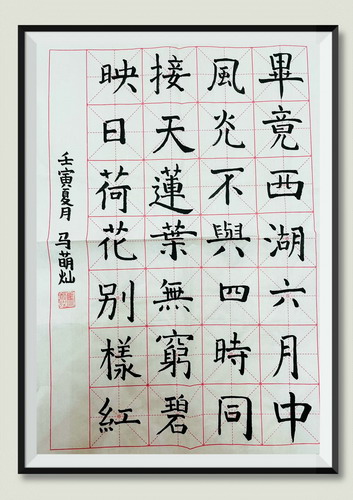 畢竟西湖六月中
風光不與四時同
接天蓮葉無窮碧
映日荷花别樣紅
壬寅夏月 马萌灿